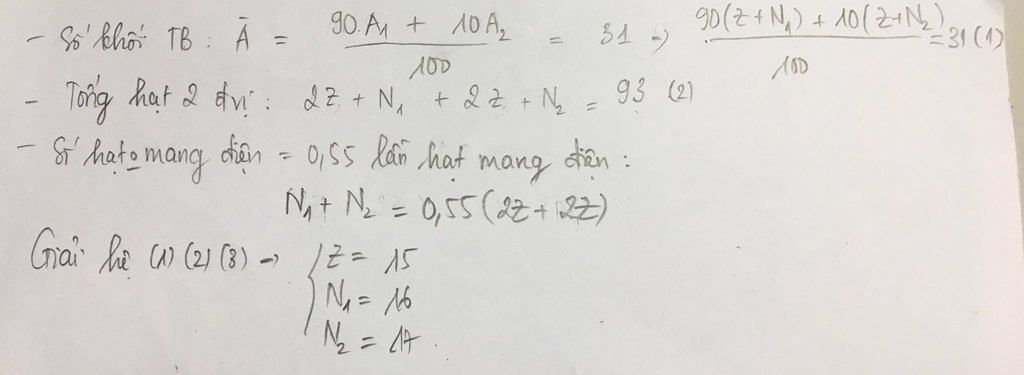 - Số khối TB : Ā = 90.A₁ + 10A₂ / 100 = 31 → 90(Z+N₁) + 10(Z+N₂) / 100 = 31 (1)
- Tổng hạt 2 đvị : 2Z + N₁ + 2Z + N₂ = 93 (2)
- Số hạt o mang điện = 0,55 lần hạt mang điện :
N₁ + N₂ = 0,55(2Z + 2Z)
Giải hệ (1) (2) (3) → { Z = 15
N₁ = 16
N₂ = 17.